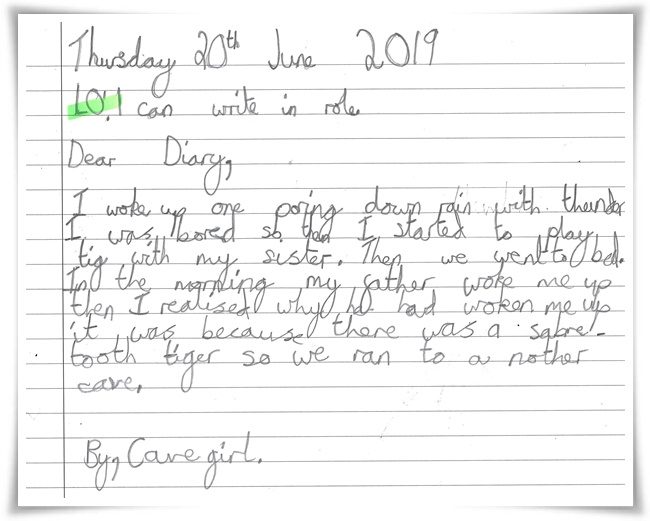 Thursday 20th June 2019
LO: I can write in role
Dear Diary,
I woke up one poring down rain with thunder
I was bored so then I started to play
tig with my sister. Then we went to bed.
In the morning my father woke me up
then I realised why he had woken me up
it was because there was a sabre-
tooth tiger so we ran to a nother
cave.
By, Cave girl.